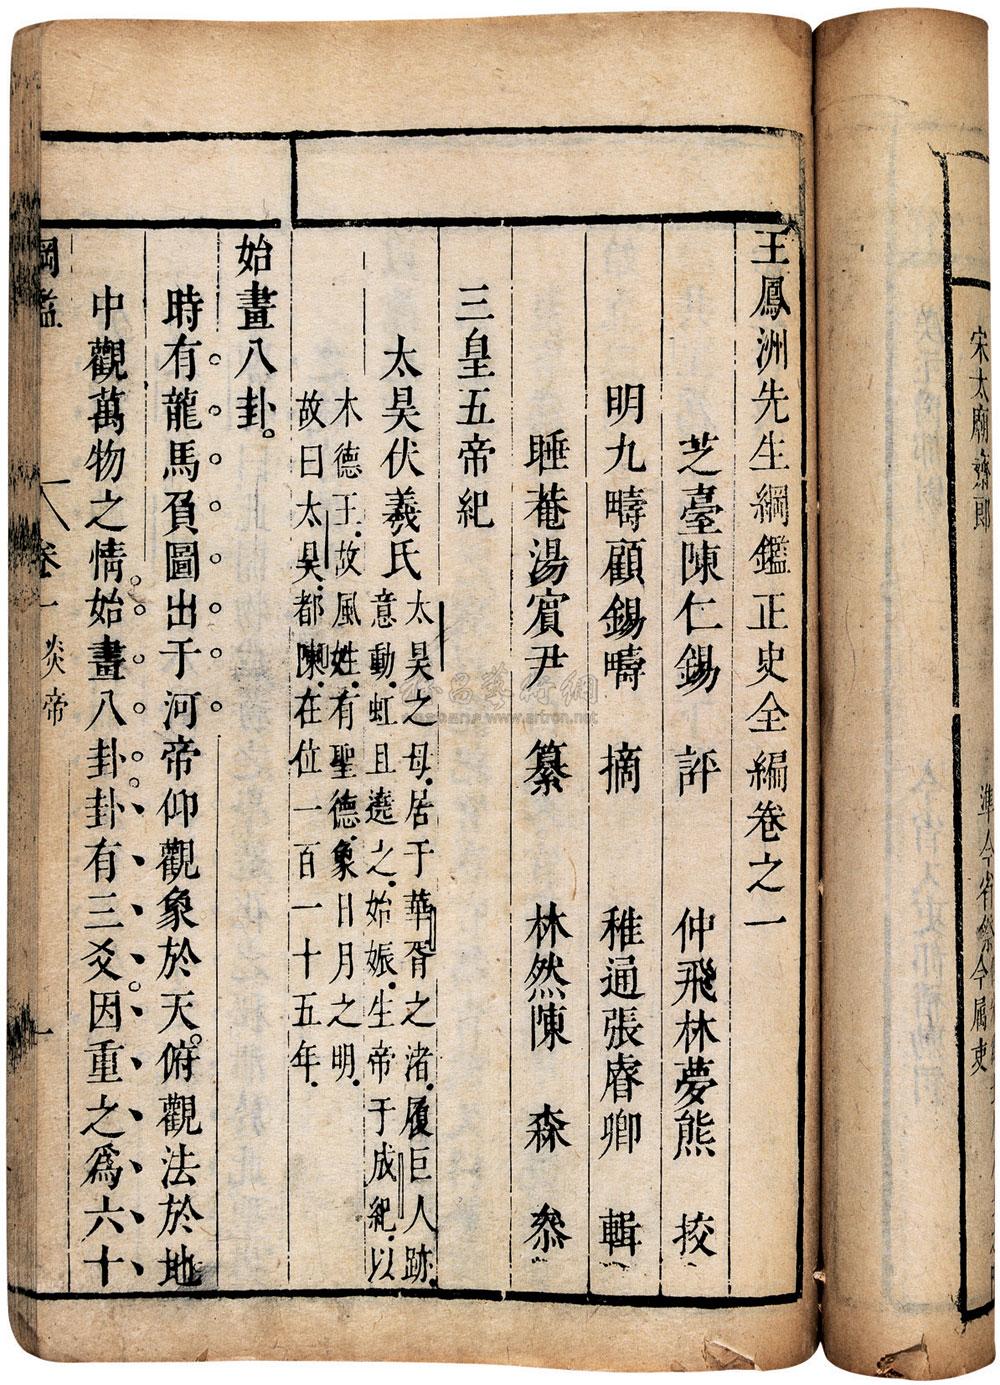 王鳳洲先生綱鑑正史全編卷之一
芝臺陳仁錫 評 仲飛林夢熊 挍
明九疇顧錫疇 摘 稚通張睿卿 輯
睡菴湯賓尹 纂 林然陳 森 叅
三皇五帝紀
太昊伏羲氏
太昊之母居于華胥之渚履巨人跡
意動虹且遶之始娠生帝于成紀以
木德王故風姓有聖德象日月之明
故曰太昊都陳在位一百一十五年
始畫八卦
時有龍馬負圖出于河帝仰觀象於天俯觀法於地
中觀萬物之情始畫八卦卦有三爻因重之爲六十
綱鑑 卷一 炎帝 一
宋太廟齋郎
www.artron.net